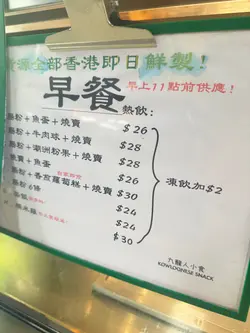 貨源全部香港即日鮮製!
早餐 早上11點前供應!
熱飲:
腸粉+魚蛋+燒賣 $26
腸粉+牛肉球+燒賣 $28
腸粉+潮洲粉果+燒賣 $28
燒賣+魚蛋 $26
腸粉+香煎蘿蔔糕+燒賣 $30
腸粉6條 $24
$24
糯米雞 $30
凍飲加$2
九龍人小食
KOWLOONESE SNACK